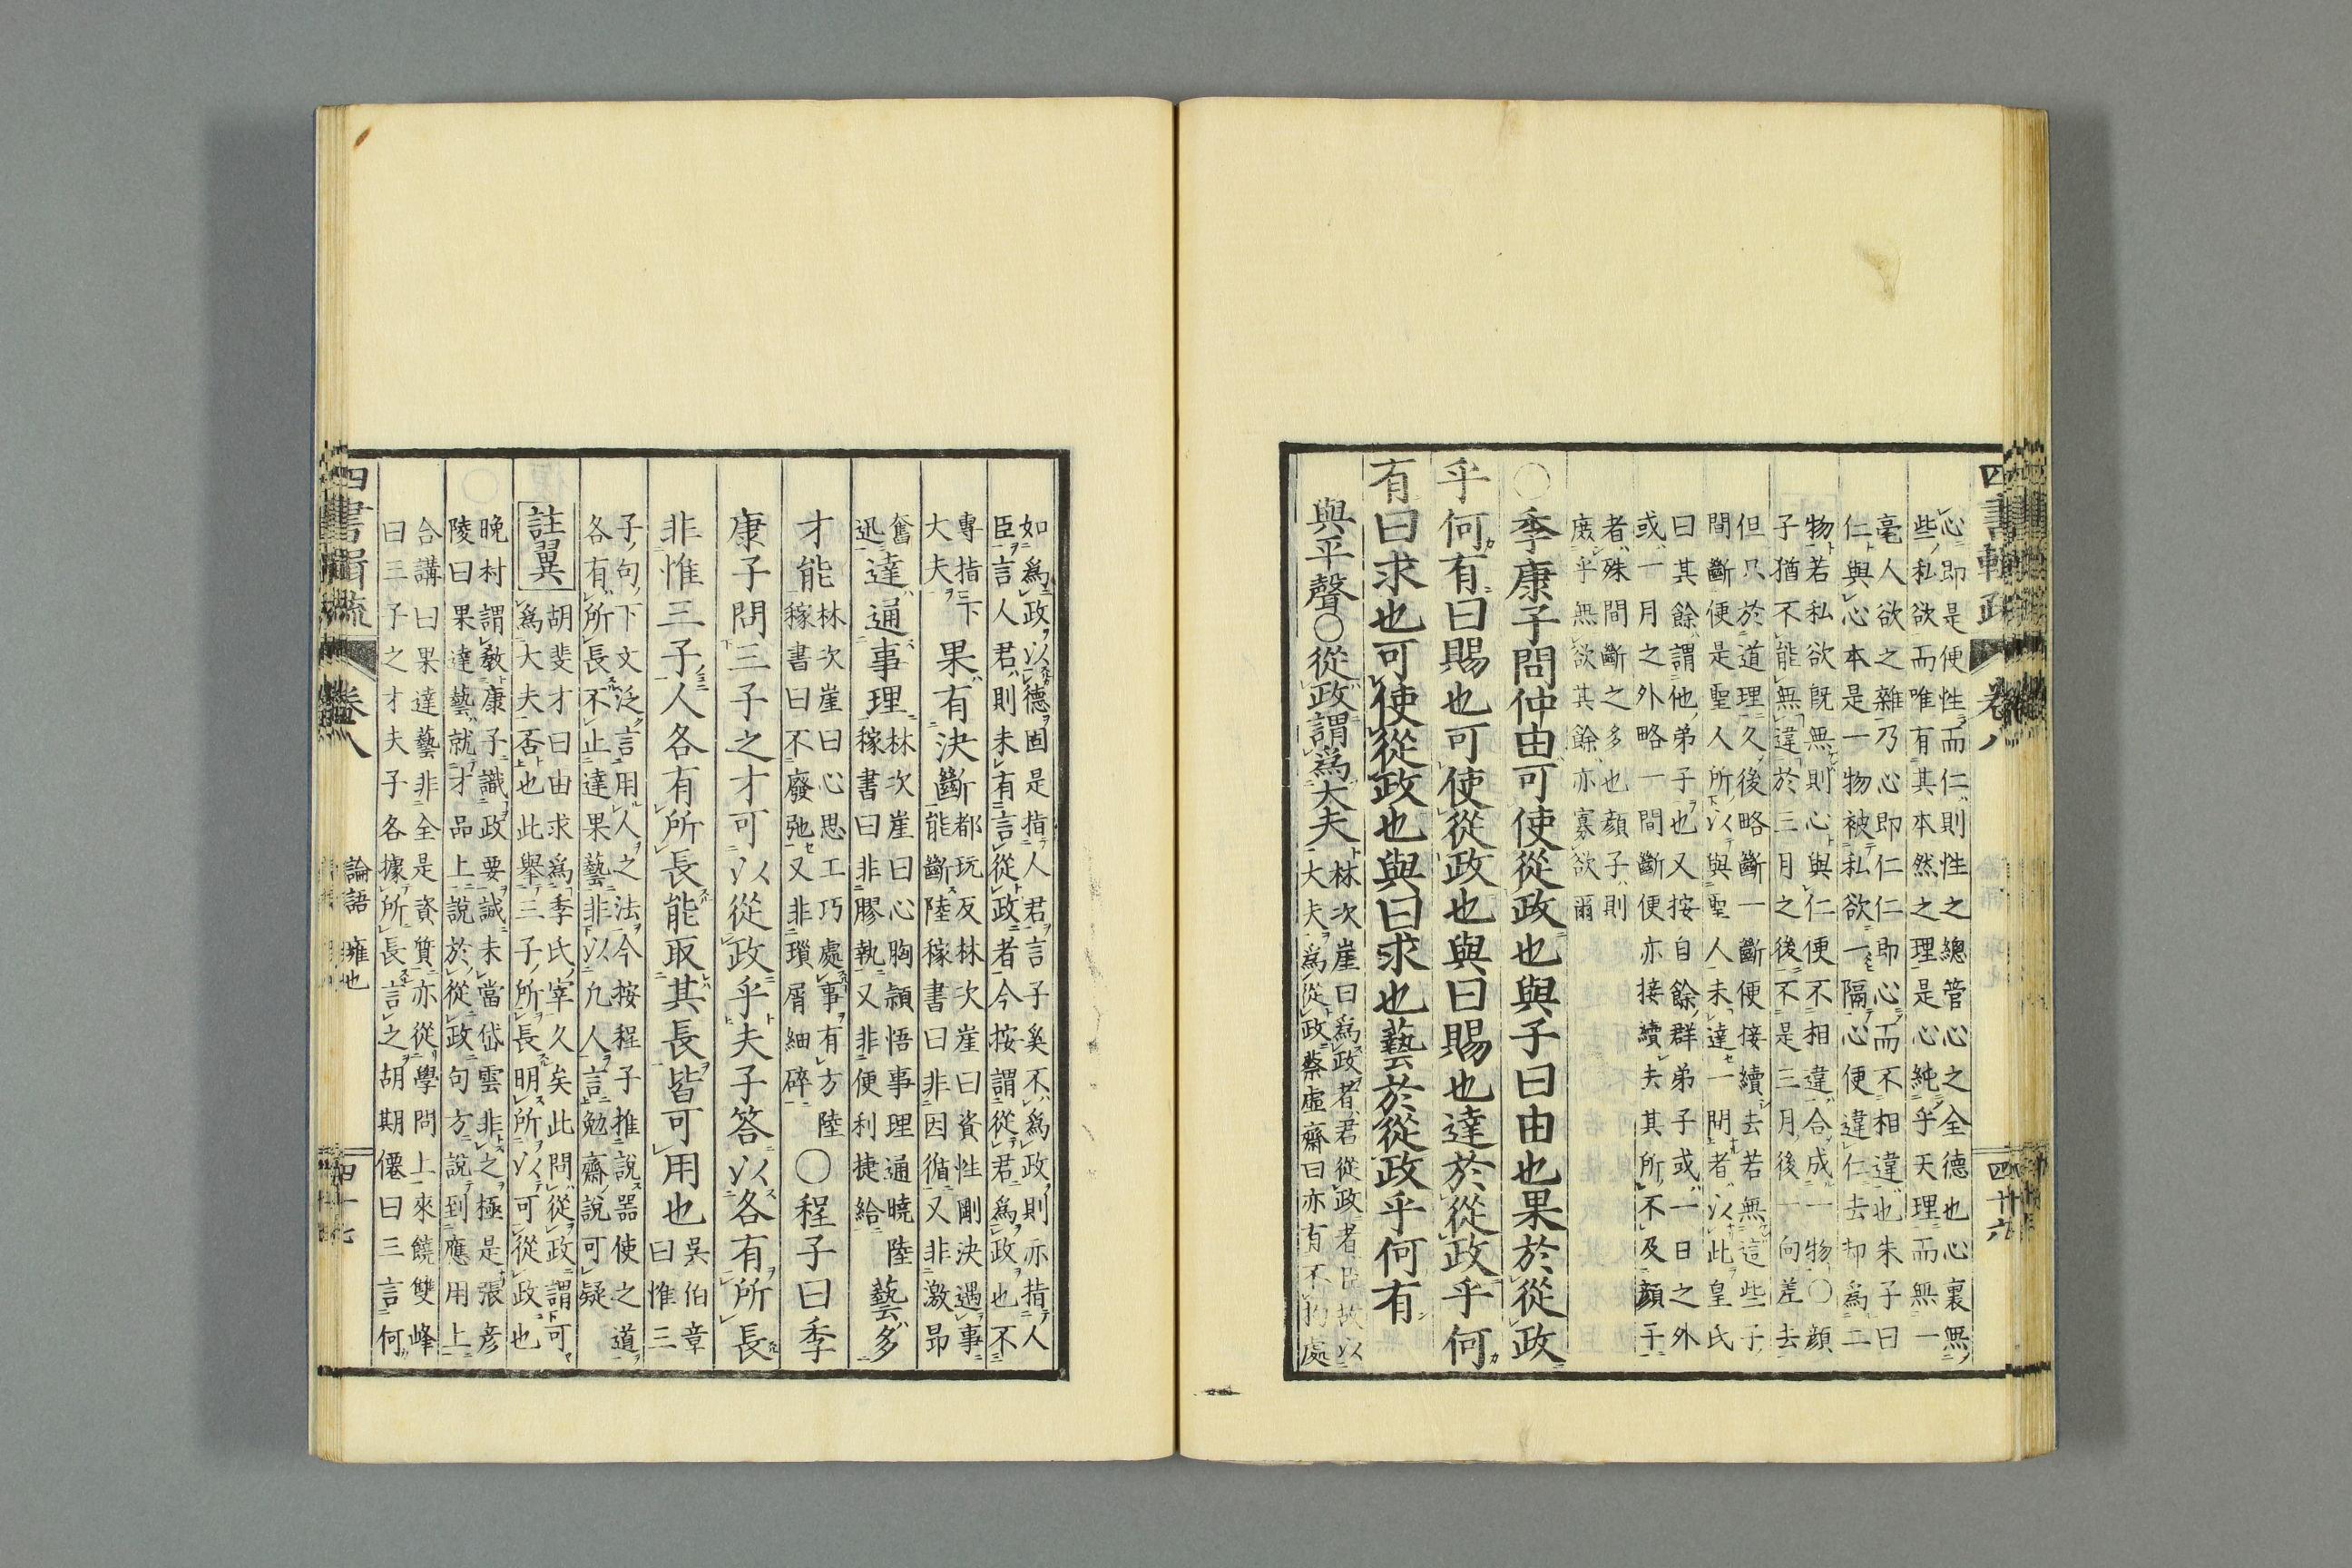 四書輯疏 卷八 四十六
心即是便性而仁則性之總管心之全德也心裏無
些私欲而唯有其本然之理是心純乎天理而無一
毫人欲之雜乃心即仁仁即心而不相違也朱子曰
仁與心本是一物被私欲一隔心便違仁去却為二
物若私欲既無則心與仁便不相違合成一物〇顔
子猶不能無違於三月之後不是三月後一向差去
但只於道理久後略斷一斷便接續去若無這些子
間斷便是聖人所以與聖人未達一間者以此皇氏
曰其餘謂他弟子也又按自餘群弟子或一日之外
或一月之外略一間斷便亦接續夫其所不及顔子
者殊間斷之多也顔子則
庶乎無欲其餘亦寡欲爾
〇季康子問仲由可使從政也與子曰由也果於從政
乎何有曰賜也可使從政也與曰賜也達於從政乎何
有曰求也可使從政也與曰求也藝於從政乎何有
與平聲〇從政謂為大夫
林次崖曰為政者君從政者臣故以
大夫為從政蔡虛齋曰亦有不拘處
如為政以德固是指人君言子奚不為政則亦指人
臣言人君則未有言從政者今按謂從君為政也不
專指下
大夫
果有決斷
都玩反林次崖曰資性剛決遇事
能斷陸稼書曰非因循又非激昂
奮
迅
達通事理
林次崖曰心胸頴悟事理通曉陸
稼書曰非膠執又非便利捷給
藝多
才能
林次崖曰心思工巧處事有方陸
稼書曰不廢弛又非瑣屑細碎
〇程子曰季
康子問三子之才可以從政乎夫子答以各有所長
非惟三子人各有所長能取其長皆可用也
吳伯章
曰惟三
子句下文泛言用人之法今按程子推說器使之道
各有所長不止達果藝非以凡人言勉齋說可疑
註翼
胡斐才曰由求為季氏宰久矣此問從政謂可
為大夫否也此舉三子所長明所以可從政也
晚村謂教康子識政要誠未當岱雲非之極是張彦
陵曰果達藝就才品上說於從政句方說到應用上
合講曰果達藝非全是資質亦從學問上來饒雙峰
曰三子之才夫子各據所長言之胡期僊曰三言何
四書輯疏 卷八 論語 雍也 四十七